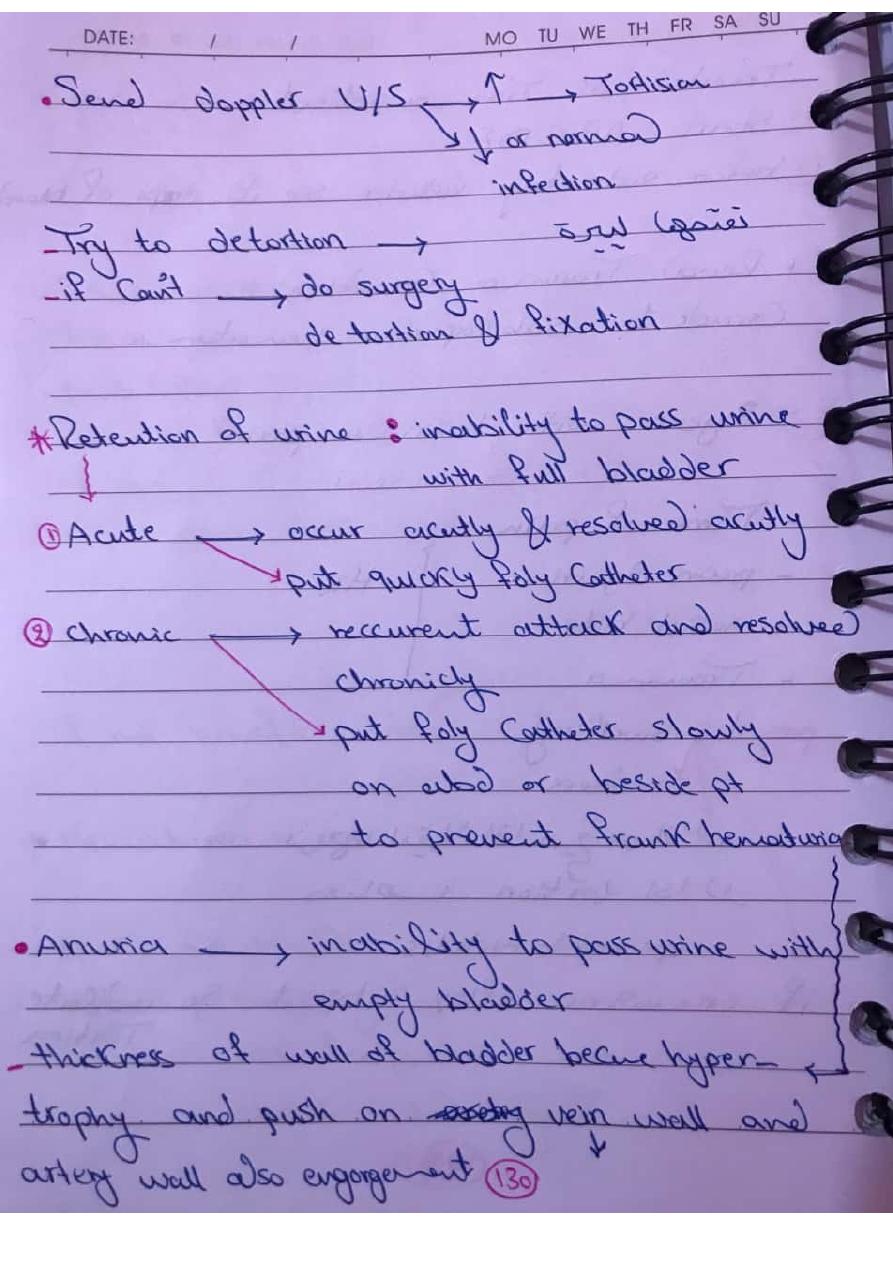 DATE: / / MO TU WE TH FR SA SU
• Send doppler U/S → ↑ → Tortision
↓ or normal
infection
- Try to detortion →
- if Can't → do surgery
detortion & fixation
* Retention of urine : inability to pass urine
with full bladder
① Acute → occur acutly & resolved acutly
put quicky foly Catheter
② chronic → reccurent attack and resolved
chronicly
put foly Catheter slowly
on abd or beside pt
to prevent frank hematuria
• Anuria → inability to pass urine with
empty bladder
- thickness of wall of bladder becue hyper-
trophy and push on vein wall and
artery wall also engorgement 130